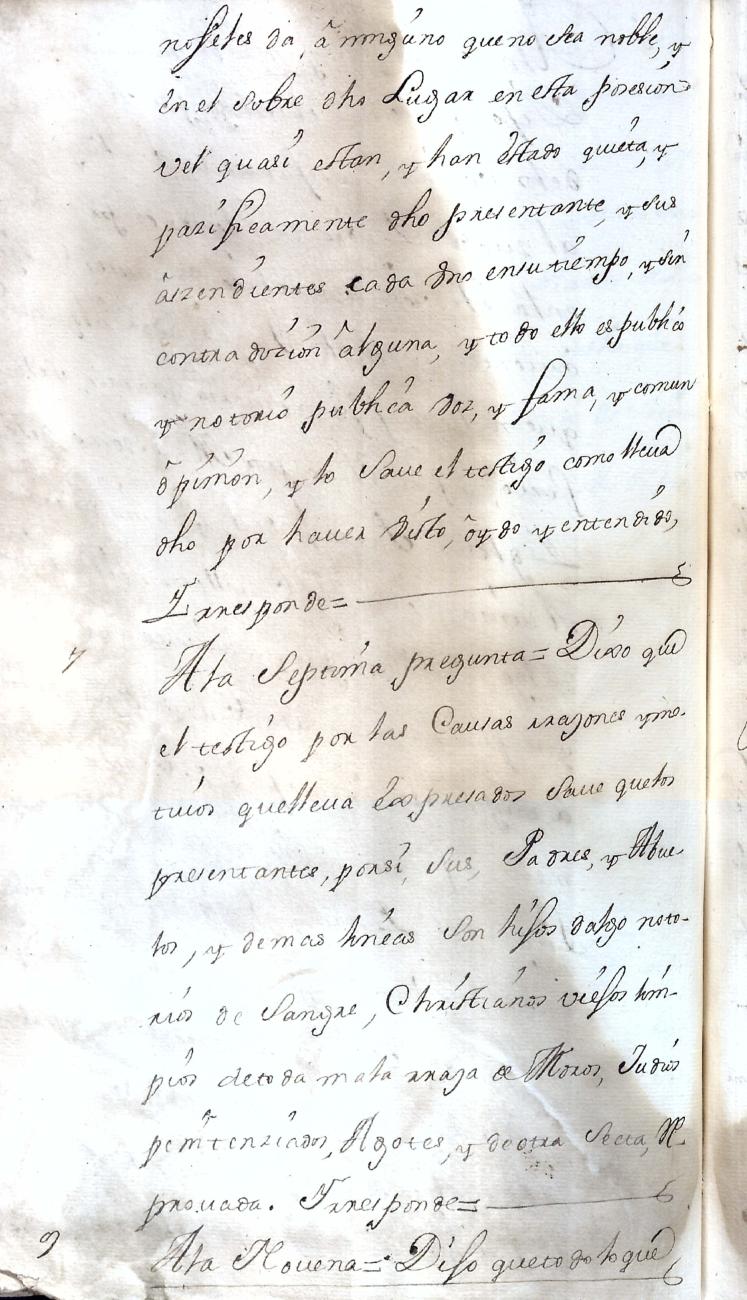 noseles da, â ningúno que no sea noble, y
en el sobre dho Lugar en esta posesion
vel quasi estan, y han estado quieta, y
pazificamente dho presentante, y sus
âszendientes cada Vno en su tiempo, y sin
contradizion âlguna, y todo ello es publico
y notorio publica Voz, y fama, y comun
ôpinion, y lo save el testigo como lleva
dho por haver visto, ôydo y entendido,
Y rresponde=
7 A la Septima pregunta= Dixo que
el testigo por las Causas rrazones y mo-
tivos que lleva Expresados save que los
presentantes, por si, sus, Padres, y Abue-
los, y demas lineas son hisos dalgo noto-
rios de Sangre, Christianos viesos lim-
pios de toda mala rraza de Moros, Judios
penitenziados, Agotes, y de otra Secta, Re-
provada. Y rresponde=
9 A la Novena= Diso que todo lo que